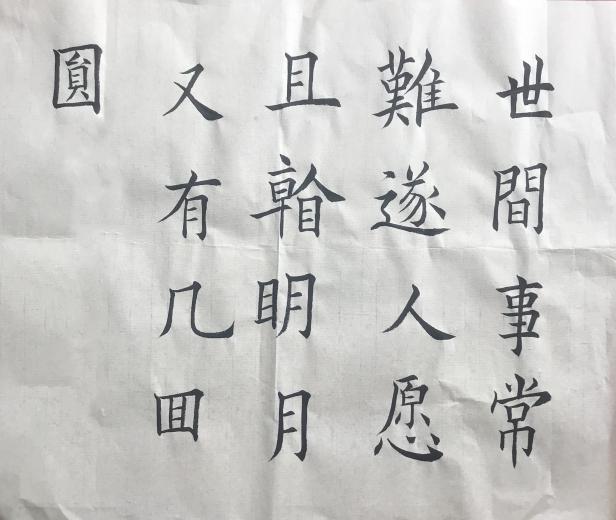 世間事常
難遂人愿
且看眀月
又有几囬
圓